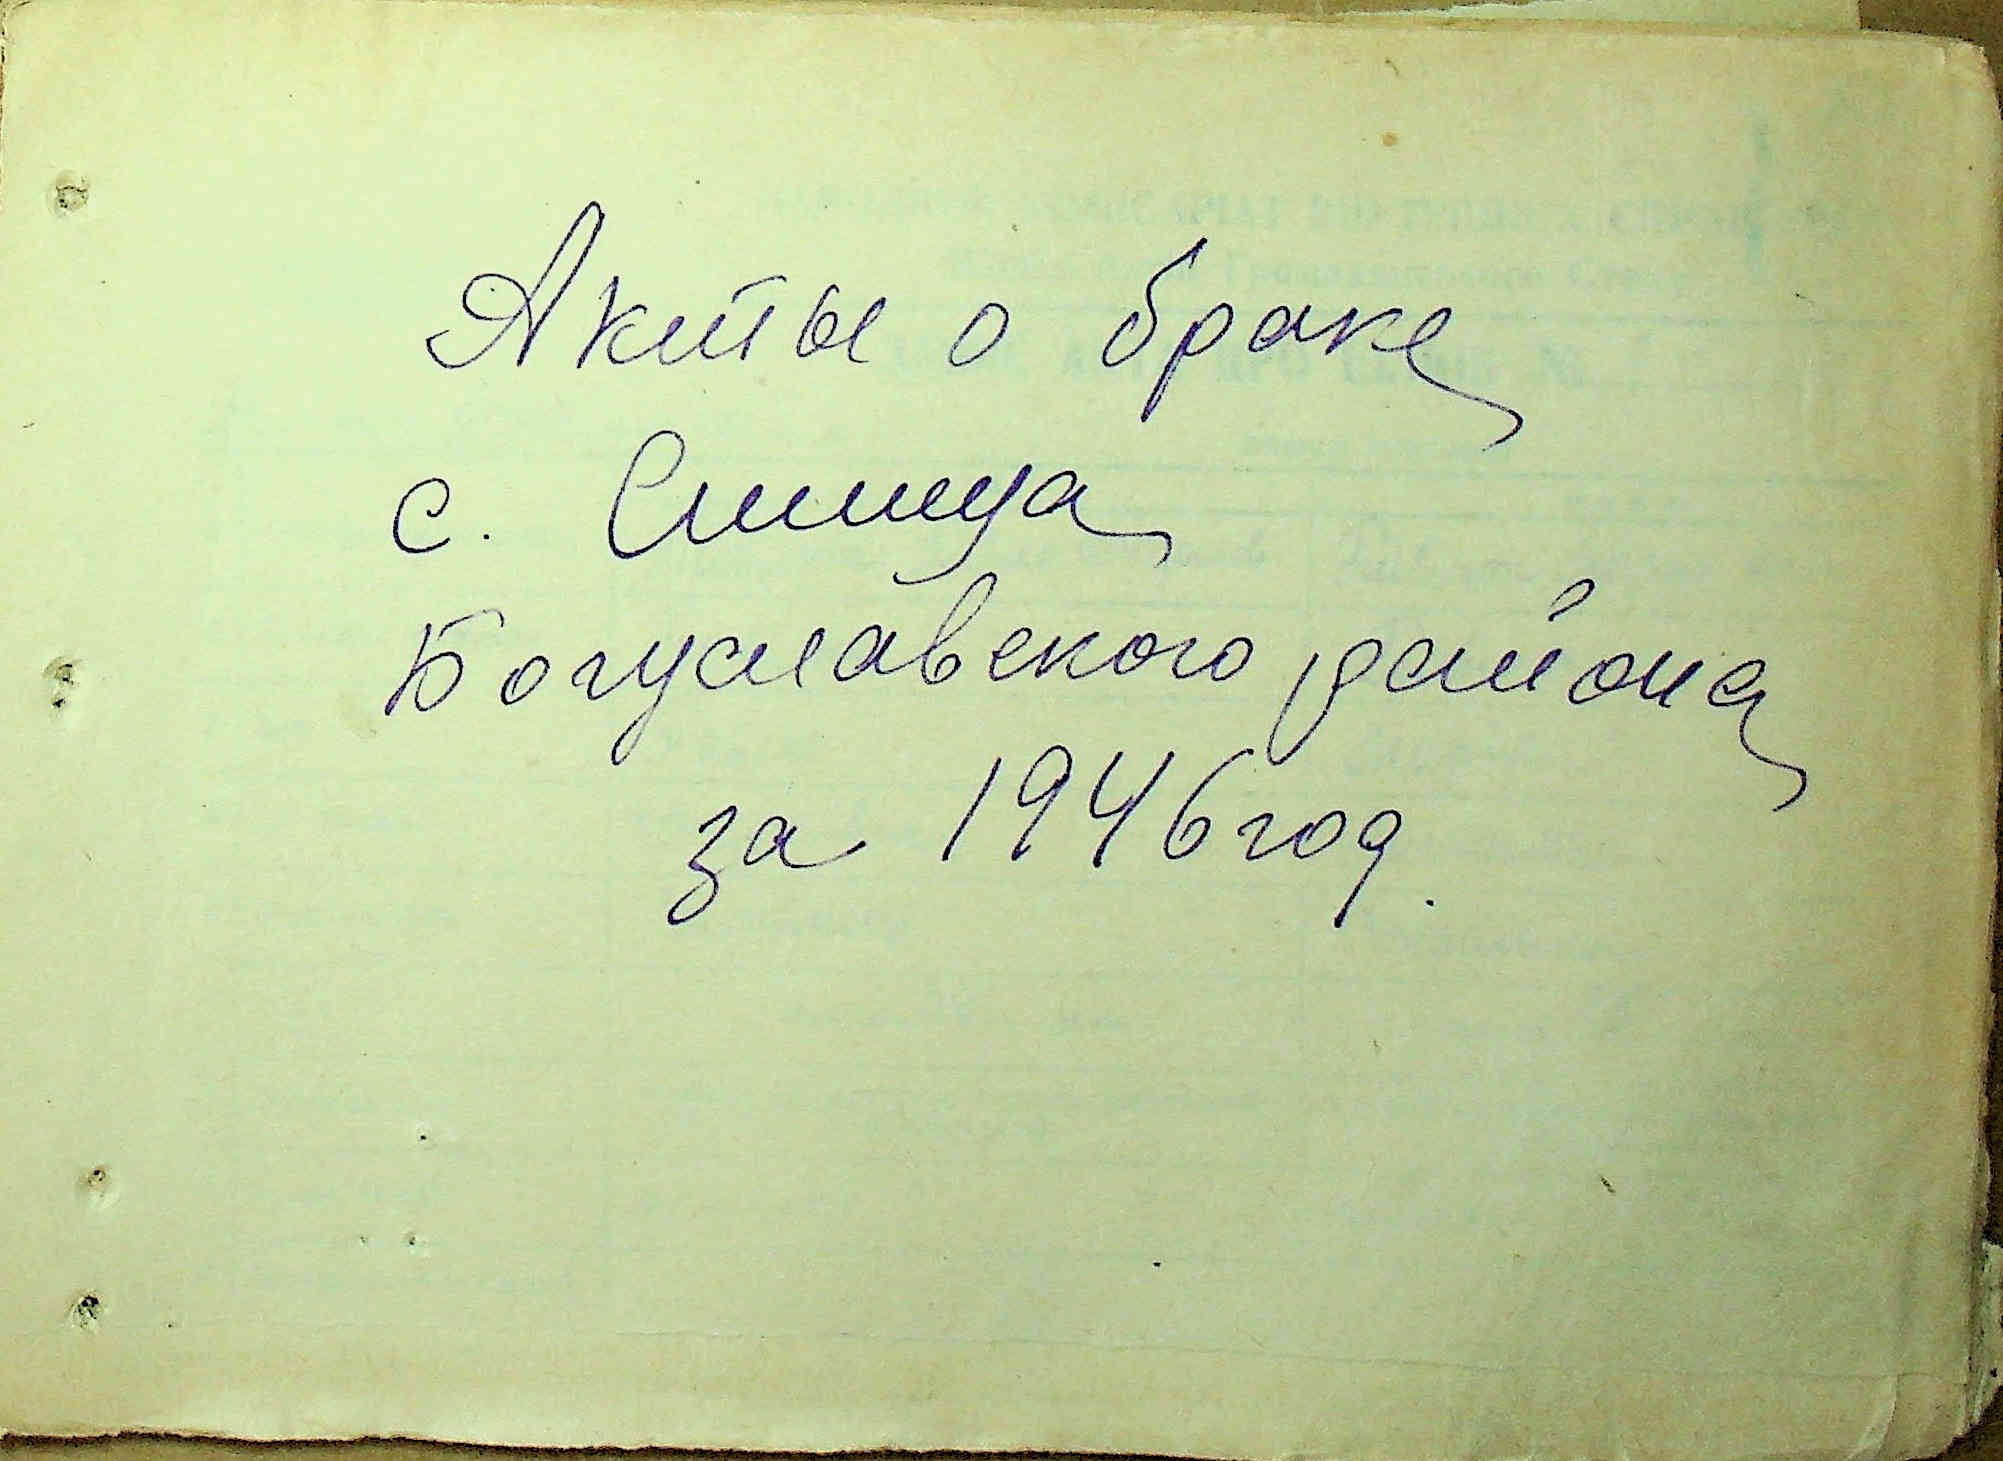 Акты о браке
с. Синица
Богуславского района
за 1946 год.